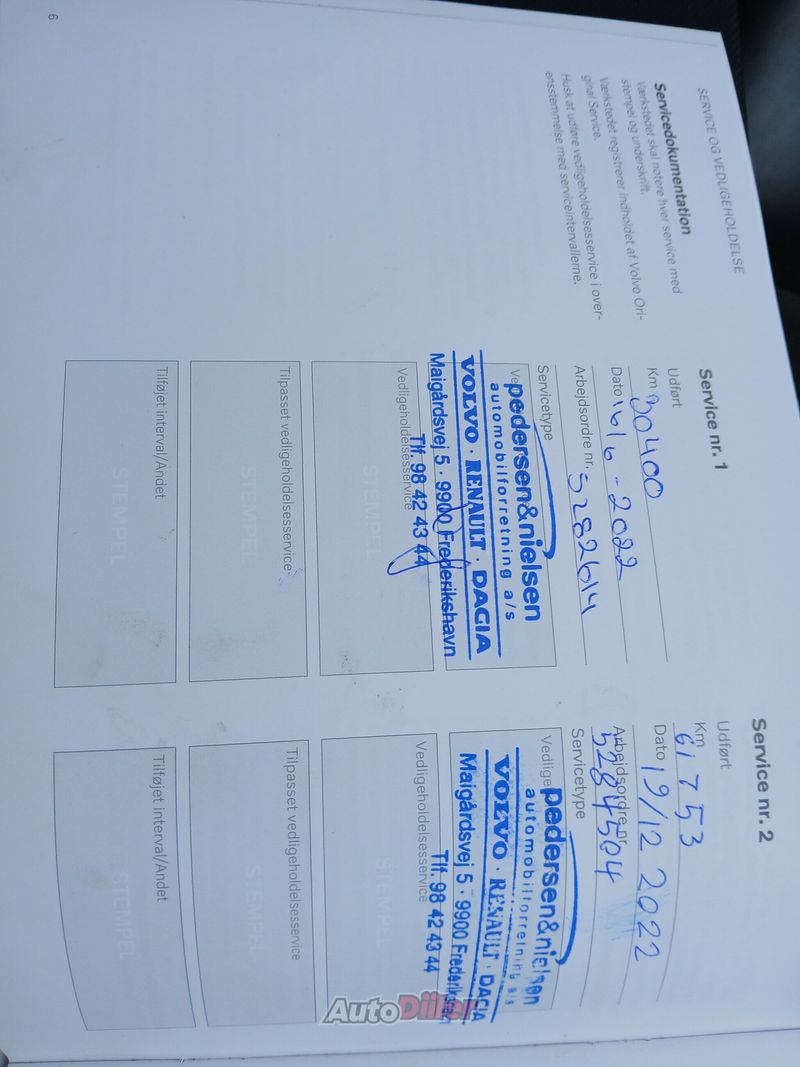 SERVICE OG VEDLIGEHOLDELSE
Servicedokumentation
Værkstedet skal notere hver service med
stempel og underskrift.
Værkstedet registrerer indholdet af Volvo Ori-
ginal Service.
Husk at udføre vedligeholdelsesservice i over-
ensstemmelse med serviceintervallerne.
Service nr. 1
Udført
Km 30400
Dato 16/6-2022
Arbejdsordre nr. 5282614
Servicetype
pedersen&nielsen
automobilforretning a/s
VOLVO · RENAULT · DACIA
Maigårdsvej 5 · 9900 Frederikshavn
Tlf. 98 42 43 44
Vedligeholdelsesservice
STEMPEL
Tilpasset vedligeholdelsesservice
STEMPEL
Tilføjet interval/Andet
STEMPEL
Service nr. 2
Udført
Km 61753
Dato 19/12 2022
Arbejdsordre nr.
5284504
Servicetype
pedersen&nielsen
automobilforretning a/s
VOLVO · RENAULT · DACIA
Maigårdsvej 5 · 9900 Frederikshavn
Tlf. 98 42 43 44
Vedligeholdelsesservice
STEMPEL
Tilpasset vedligeholdelsesservice
STEMPEL
Tilføjet interval/Andet
STEMPEL
6
AutoDiler